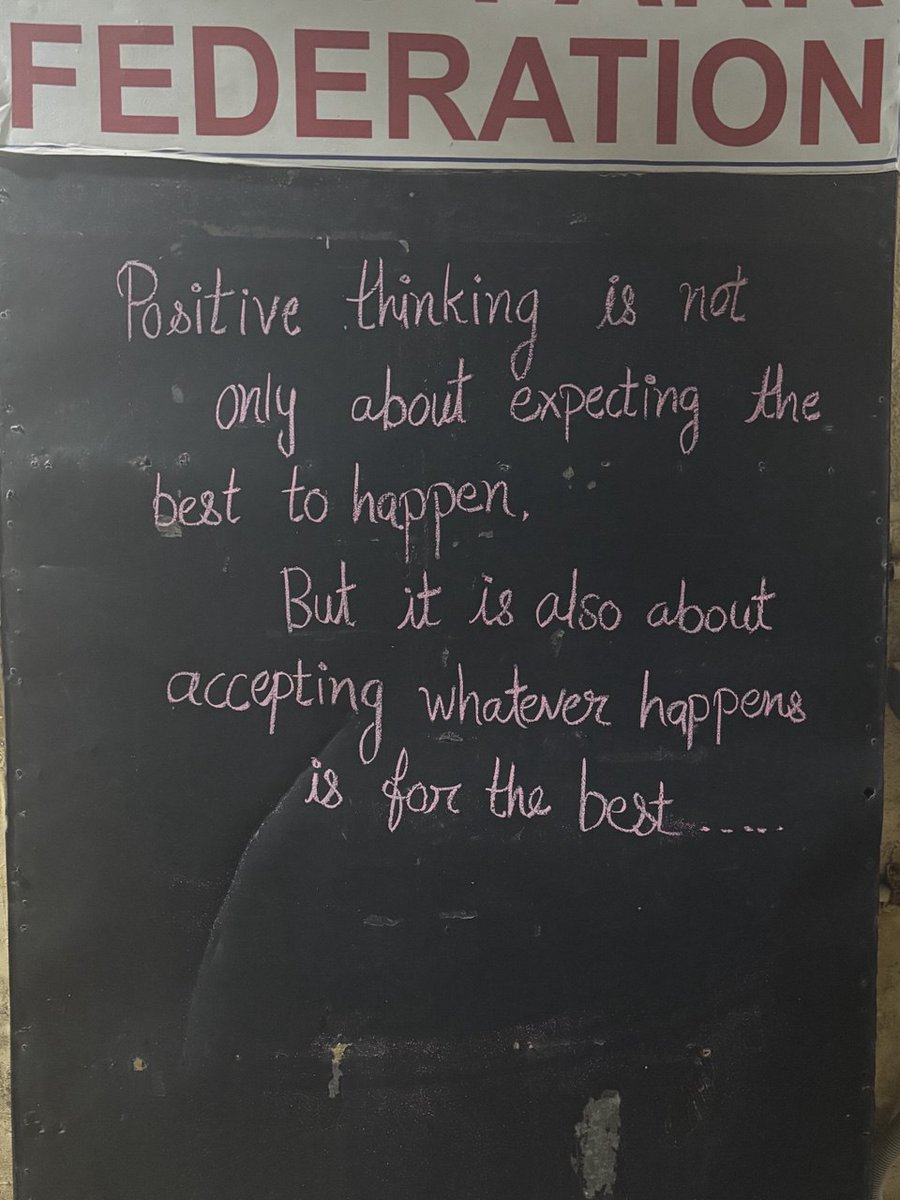 FEDERATION
Positive thinking is not
only about expecting the
best to happen.
But it is also about
accepting whatever happens
is for the best.....